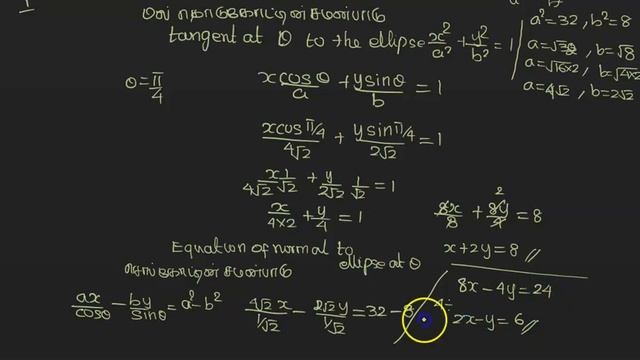 tangent at θ to the ellipse x²/a² + y²/b² = 1
a² = 32, b² = 8
a = √32, b = √8
a = √16×2, b = √4×2
a = 4√2, b = 2√2
θ = π/4
x cosθ/a + y sinθ/b = 1
x cos π/4/4√2 + y sin π/4/2√2 = 1
x/4√2 1/√2 + y/2√2 1/√2 = 1
x/4×2 + y/4 = 1
8x/8 + 8y/4 = 8
2
x + 2y = 8 //
Equation of normal to ellipse at θ
ax/cosθ - by/sinθ = a² - b²
4√2 x/1/√2 - 2√2 y/1/√2 = 32 - 8
8x - 4y = 24
÷4
2x - y = 6 //